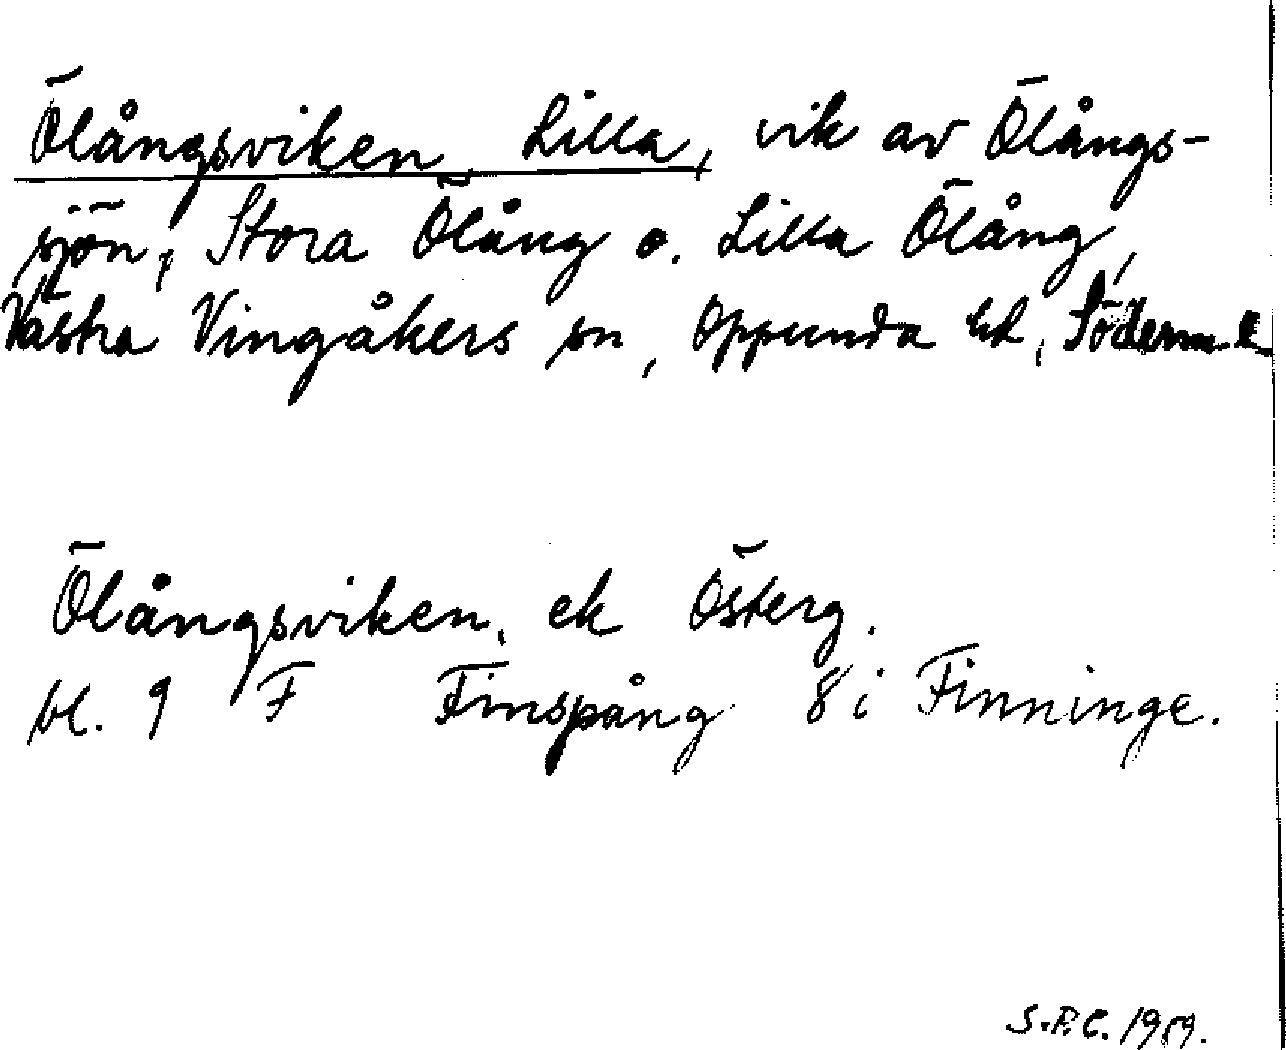 Ölångsviken, Lilla, vik av Ölångs-
sjön, Stora Ölång o. Lilla Ölång,
Västra Vingåkers sn, Oppunda hd, Söderm. l.
Ölångsviken, ek Österg.
bl. 9 F Finspång 8 i Finninge.
S.P.C. 1959.